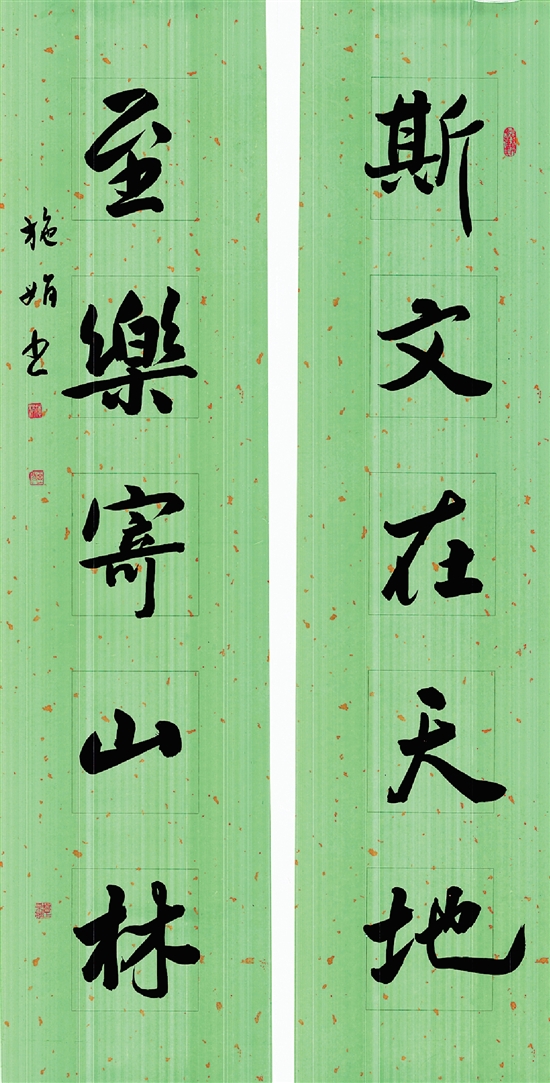 斯文在天地
至樂寄山林
施娟书